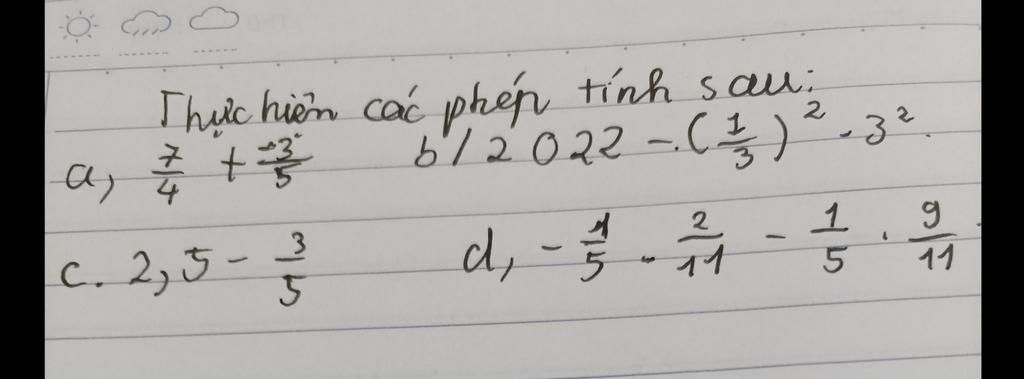 Thực hiện các phép tính sau:
a, 7/4 + -3/5 b/ 2022 - (1/3)² . 3².
c. 2,5 - 3/5 d, -1/5 . 2/11 - 1/5 . 9/11